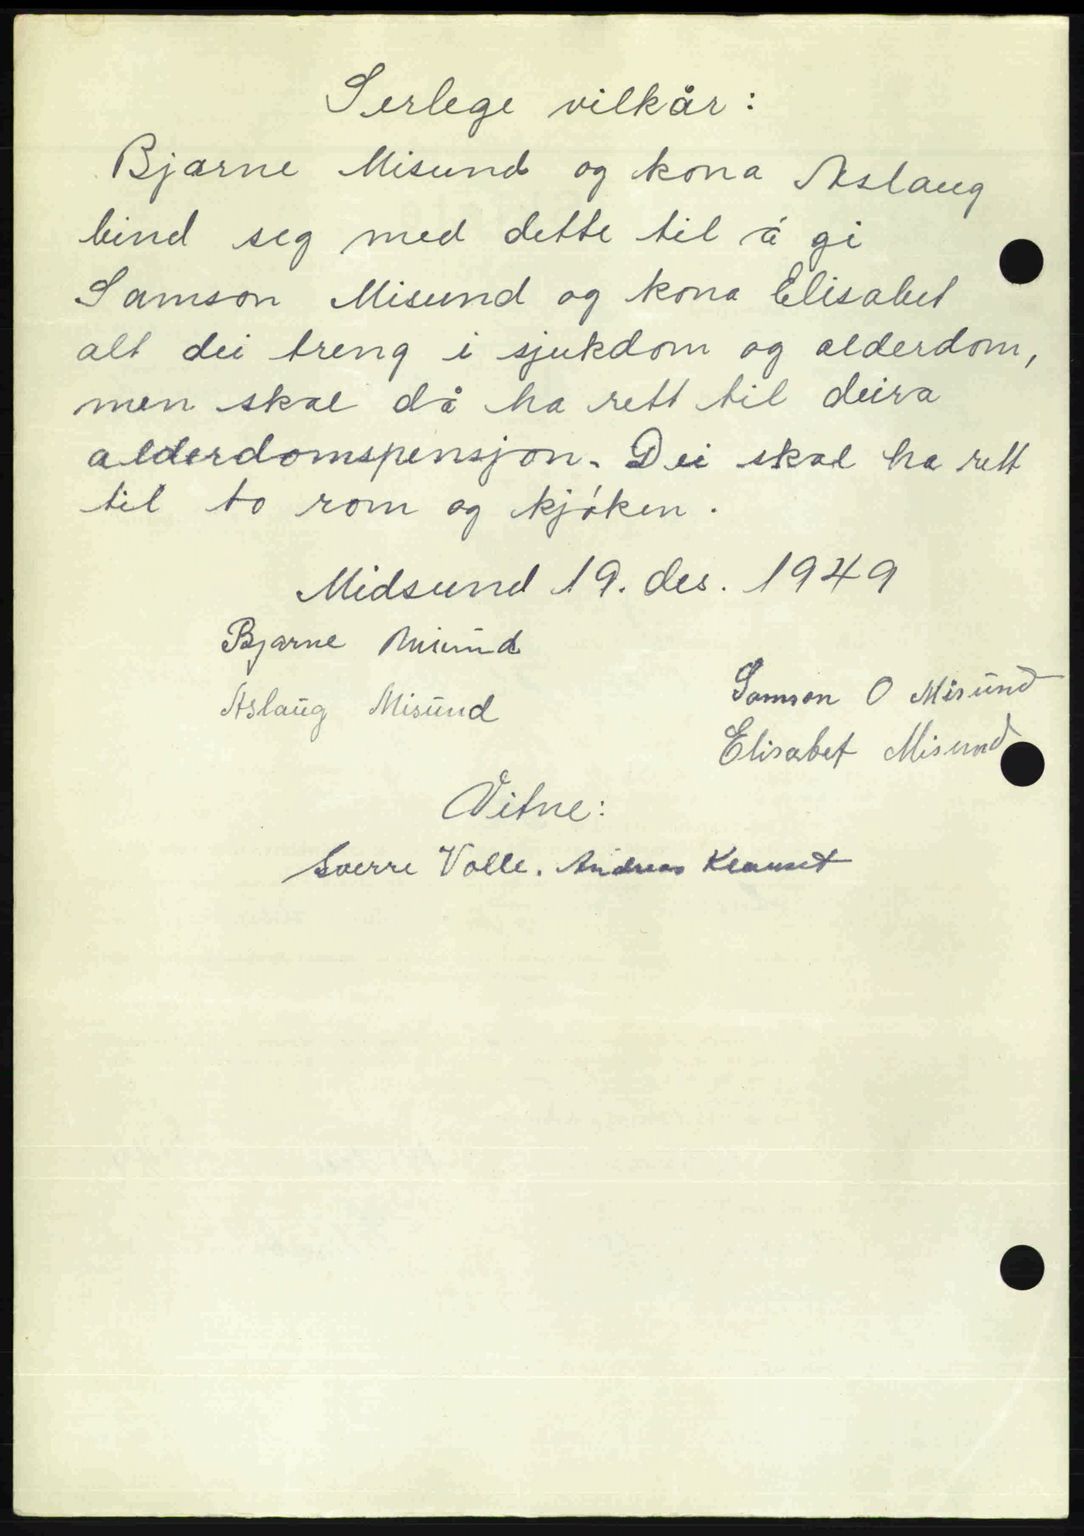 Serlege vilkår:
Bjarne Misund og kona Aslaug
bind seg med dette til å gi
Samson Misund og kona Elisabet
alt dei treng i sjukdom og alderdom,
men skal då ha rett til deira
alderdomspensjon. Dei skal ha rett
til to rom og kjøken.
Midsund 19. des. 1949
Bjarne Misund
Aslaug Misund
Samson O Misund
Elisabet Misund
Vitne:
Sverre Volle. Andreas Klauset